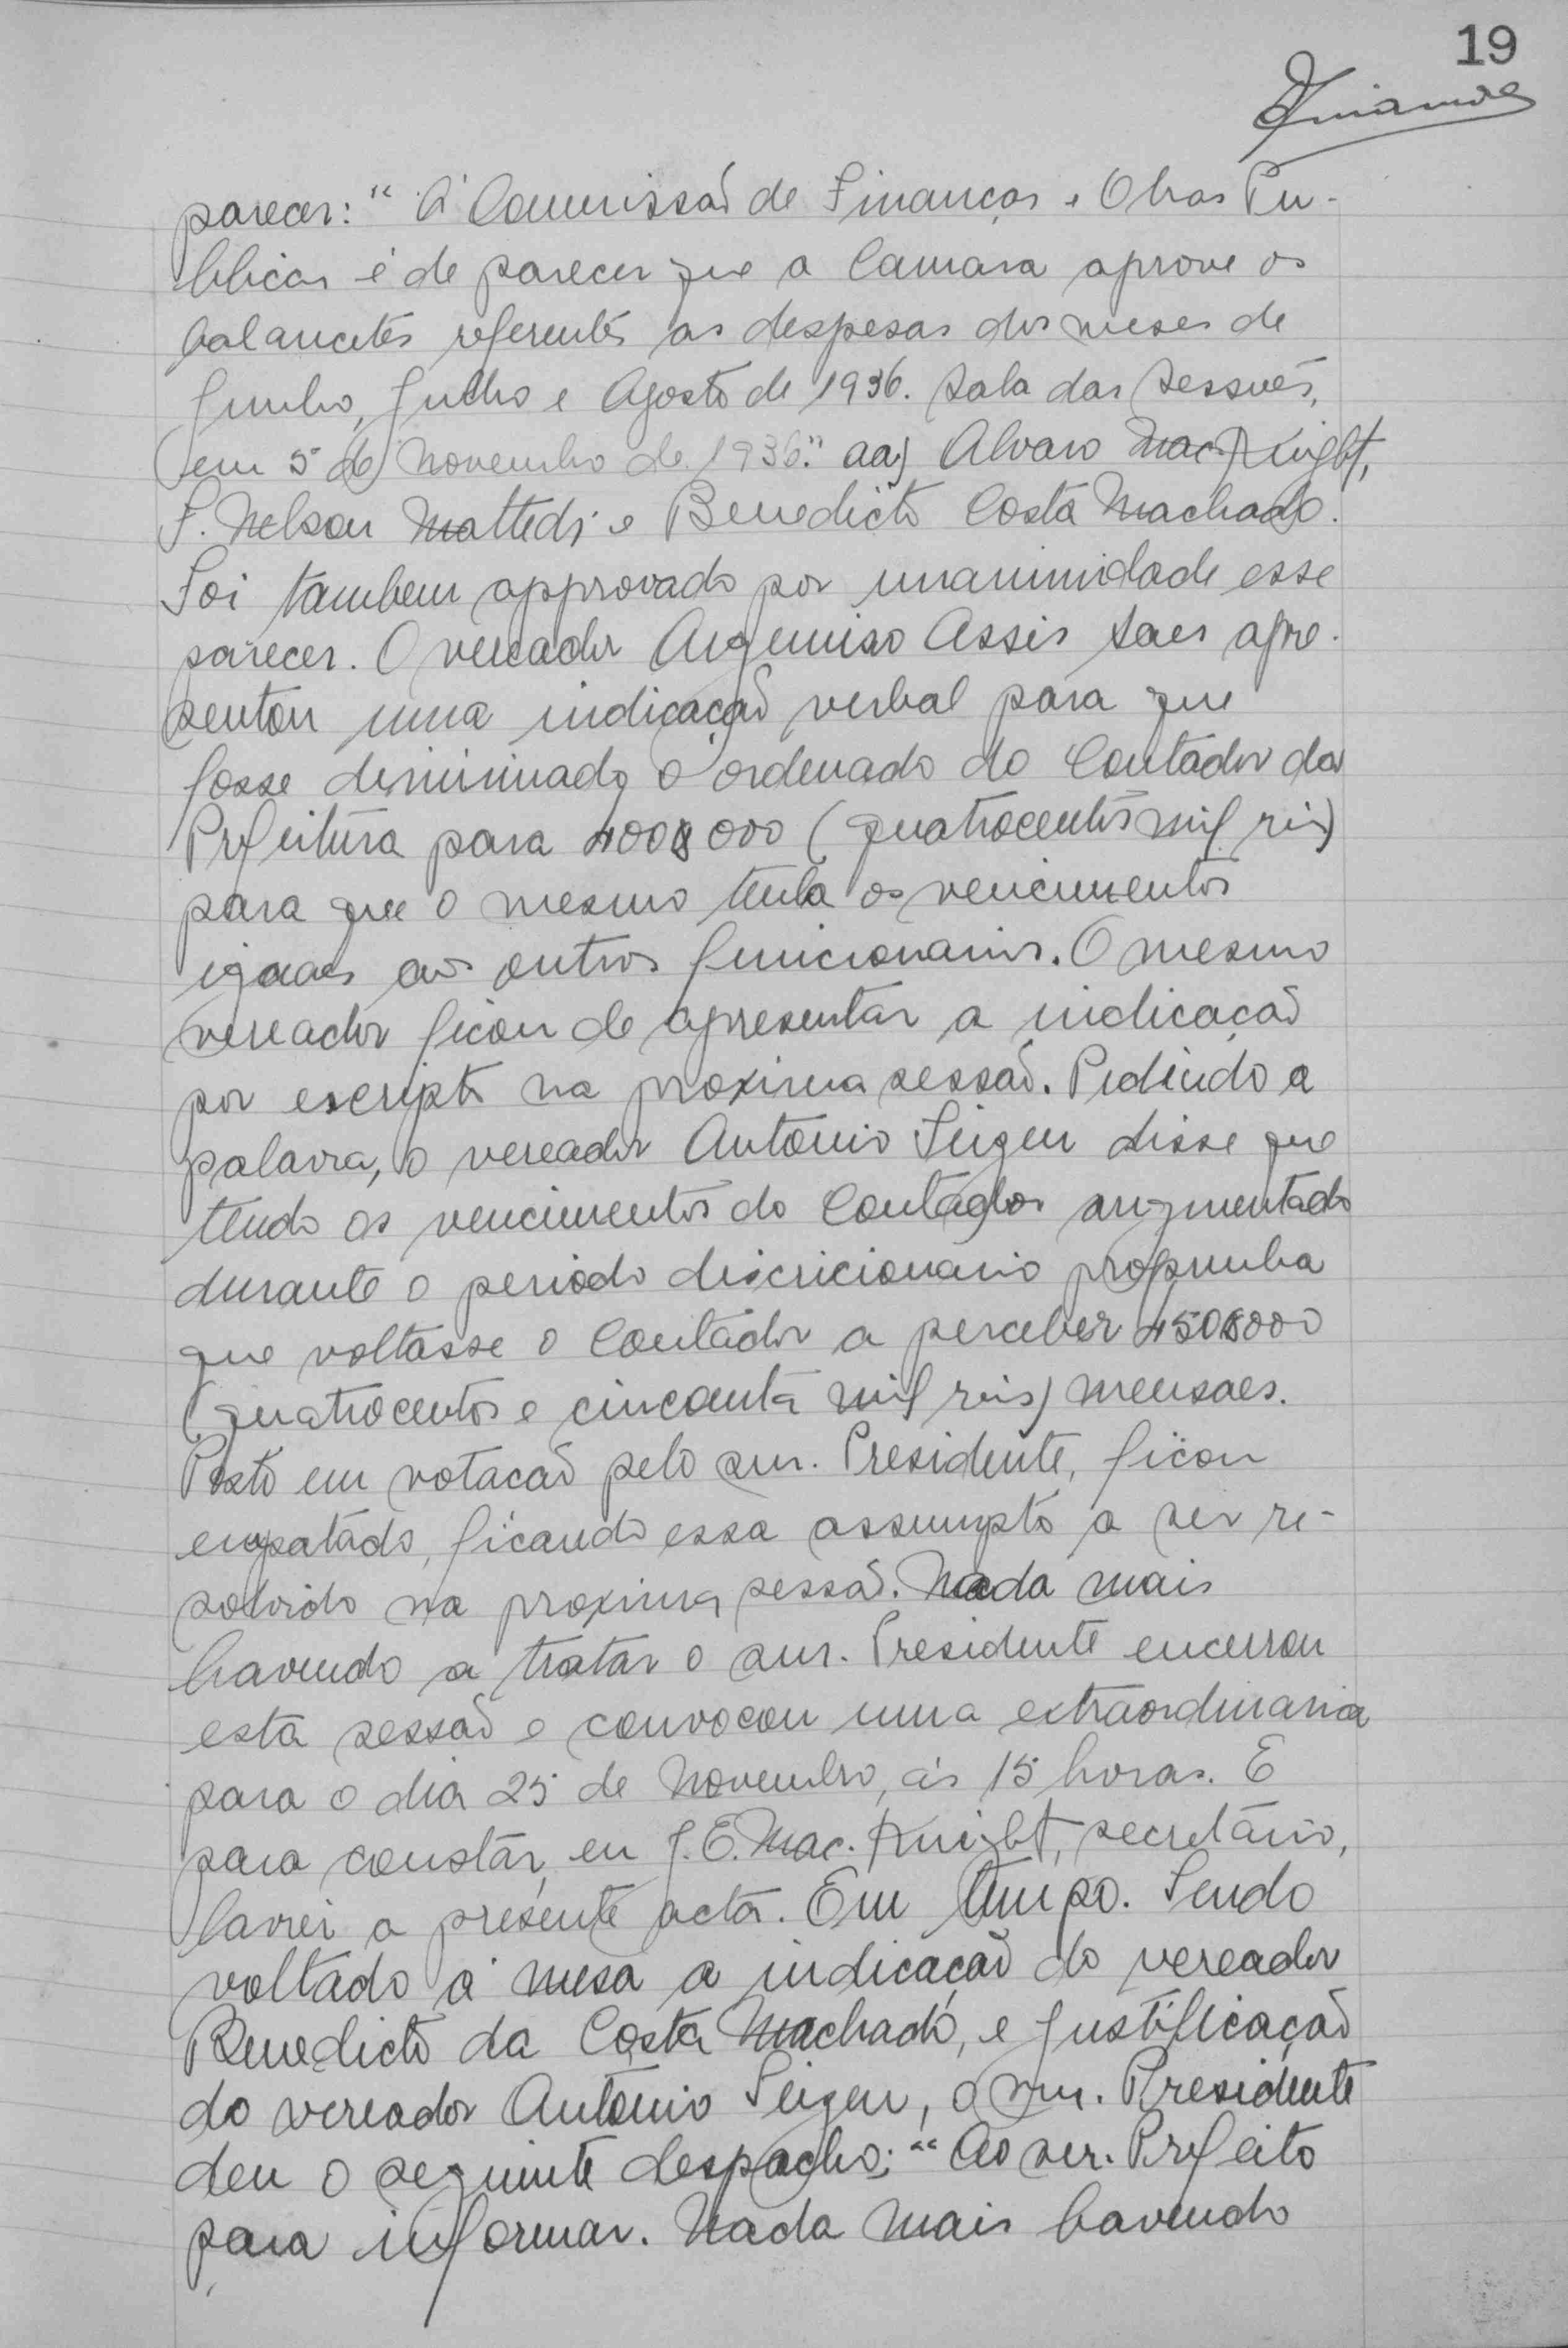 19
parecer: " A Commissão de Finanças e Obras Pu-
blicas é de parecer que a Camara aprove os
balancetes referentes as despesas dos meses de
Junho, Julho e Agosto de 1936. Sala das Sessões,
em 5 de Novembro de 1936." aa) Alvaro Mac. Knight,
F. Nelson Mattedi e Benedicto Costa Machado.
Foi tambem approvado por unanimidade esse
parecer. O vereador Argemiro Assis Saes apre-
sentou uma indicação verbal para que
fosse diminuado o ordenado do Contador da
Prefeitura para 400$000 (quatrocentos mil reis)
para que o mesmo tenha os vencimentos
iguaes aos outros funicionarios. O mesmo
vereador ficou de apresentar a indicação
por escripto na proxima sessão. Pedindo a
palavra, o vereador Antonio Seigen disse que
tendo os vencimentos do Contador augmentado
durante o periodo discricionario propunha
que voltasse o Contador a perceber 450$000
(quatrocentos e cincoenta mil reis) mensaes.
Posto em votação pelo snr. Presidente, ficou
empatado, ficando essa assumpto a ser re-
solvido na proxima sessão. Nada mais
havendo a tratar o snr. Presidente encerrou
esta sessão e convocou uma extraordinaria
para o dia 25 de Novembro, ás 15 horas. E
para constar, eu J. E. Mac. Knight, secretário,
lavrei a presente acta. Em tempo. Sendo
voltado á mesa a indicação do vereador
Benedicto da Costa Machado, e justificação
do vereador Antonio Seigen, o snr. Presidente
deu o seguinte despacho: " Ao snr. Prefeito
para informar. Nada mais havendo